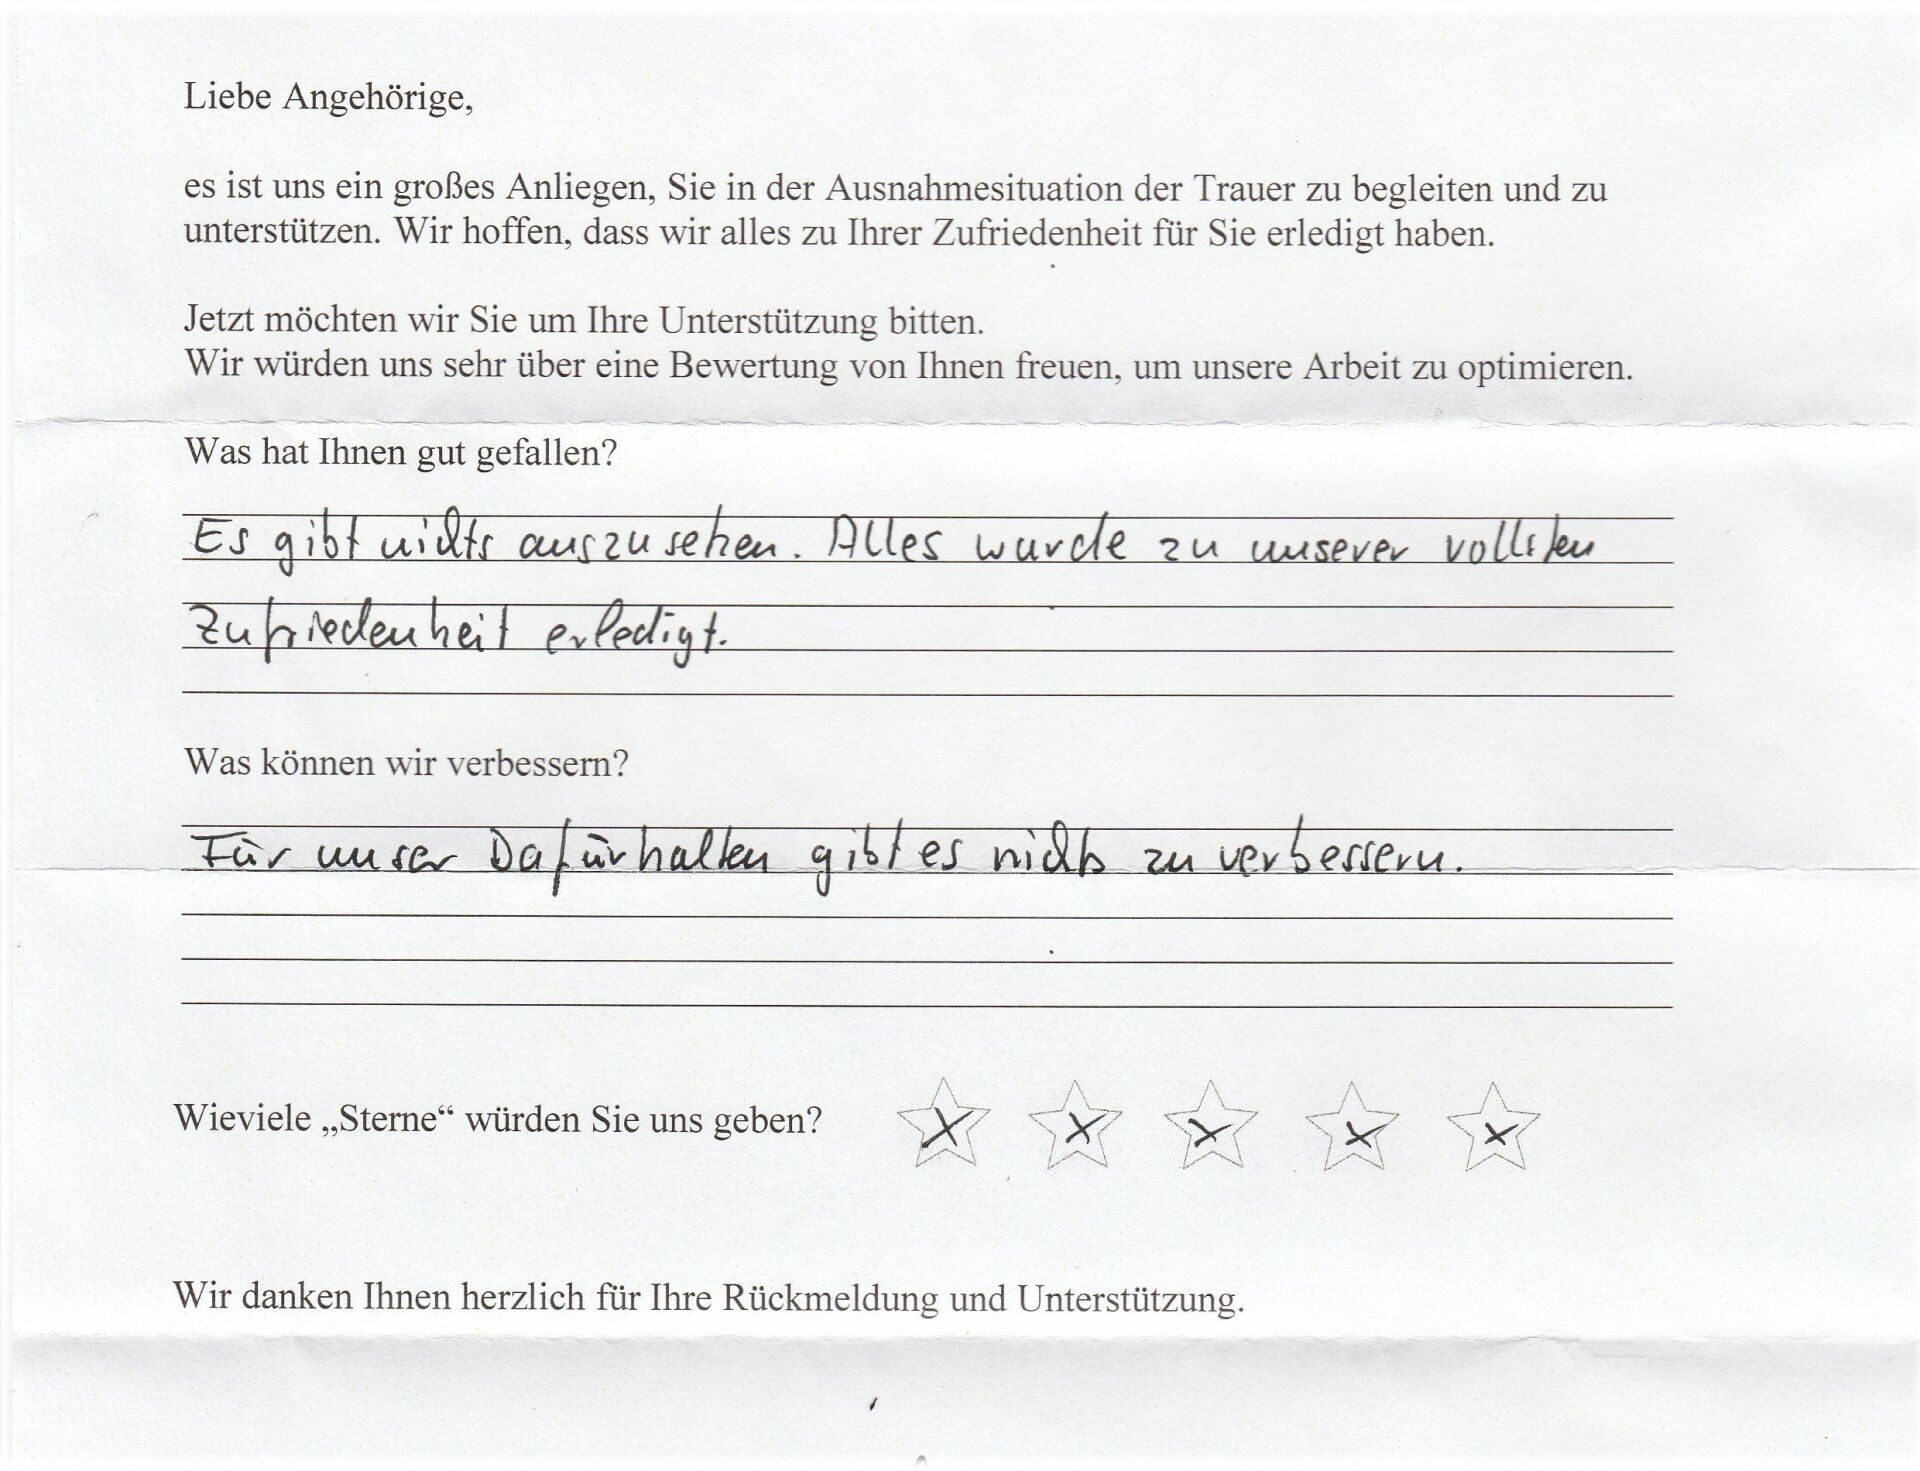 Liebe Angehörige,
es ist uns ein großes Anliegen, Sie in der Ausnahmesituation der Trauer zu begleiten und zu
unterstützen. Wir hoffen, dass wir alles zu Ihrer Zufriedenheit für Sie erledigt haben.
Jetzt möchten wir Sie um Ihre Unterstützung bitten.
Wir würden uns sehr über eine Bewertung von Ihnen freuen, um unsere Arbeit zu optimieren.
Was hat Ihnen gut gefallen?
Es gibt nichts auszusetzen. Alles wurde zu unserer vollsten
Zufriedenheit erledigt.
Was können wir verbessern?
Für unser Dafürhalten gibt es nichts zu verbessern.
Wieviele „Sterne“ würden Sie uns geben? x x x x x
Wir danken Ihnen herzlich für Ihre Rückmeldung und Unterstützung.